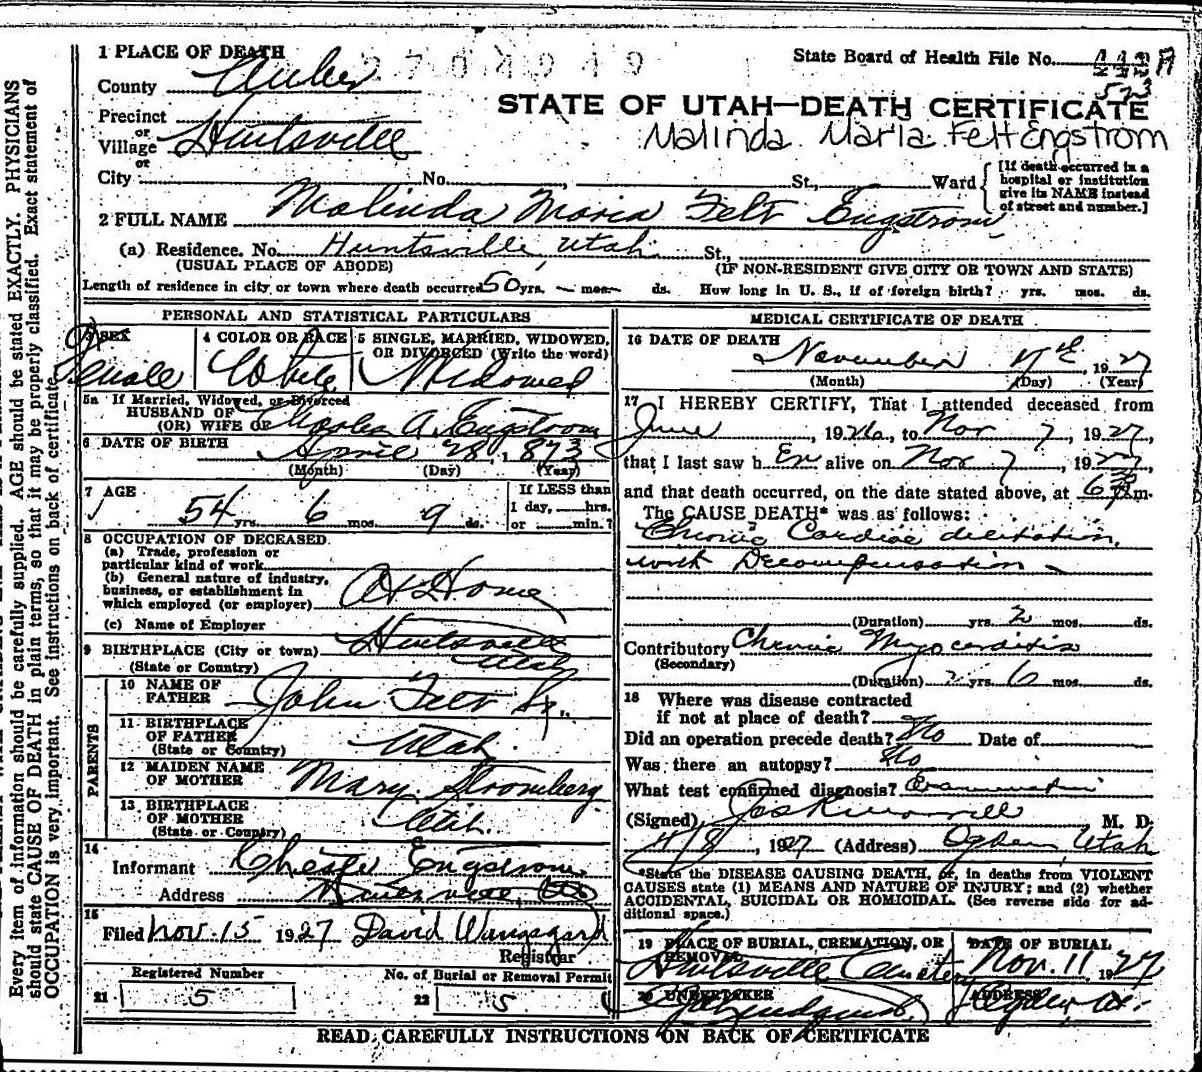 1 PLACE OF DEATH
State Board of Health File No.
County
STATE OF UTAH—DEATH CERTIFICATE
Precinct
or
Village Huntsville
or
Malinda Maria Felt Engstrom
City No. , St., Ward
[If death occurred in a hospital or institution give its NAME instead of street and number.]
2 FULL NAME Malinda Maria Felt Engstrom
(a) Residence. No. Huntsville, Utah. St.,
(USUAL PLACE OF ABODE) (IF NON-RESIDENT GIVE CITY OR TOWN AND STATE)
Length of residence in city or town where death occurred 50 yrs. — mos. — ds. How long in U. S., if of foreign birth? yrs. mos. ds.
PERSONAL AND STATISTICAL PARTICULARS
3 SEX
Female
4 COLOR OR RACE
White
5 SINGLE, MARRIED, WIDOWED,
OR DIVORCED (Write the word)
Widowed
5a If Married, Widowed, or Divorced
HUSBAND OF
(OR) WIFE OF Charles A. Engstrom
6 DATE OF BIRTH April 28, 1873
(Month) (Day) (Year)
7 AGE
54 yrs. 6 mos. 9 ds.
If LESS than
1 day, hrs.
or min.?
8 OCCUPATION OF DECEASED.
(a) Trade, profession or
particular kind of work
(b) General nature of industry,
business, or establishment in
which employed (or employer) At Home
(c) Name of Employer
9 BIRTHPLACE (City or town) Huntsville
(State or Country) Utah
PARENTS
10 NAME OF
FATHER John Felt Sr.
11 BIRTHPLACE
OF FATHER
(State or Country) Utah.
12 MAIDEN NAME
OF MOTHER Mary Stromberg
13 BIRTHPLACE
OF MOTHER
(State or Country) Utah.
14
Informant Chester Engstrom
Address Huntsville,
15
Filed Nov. 15 1927 David Wangsgard
Registrar
Registered Number No. of Burial or Removal Permit
21 5 22 5
MEDICAL CERTIFICATE OF DEATH
16 DATE OF DEATH
November 7th, 1927
(Month) (Day) (Year)
17 I HEREBY CERTIFY, That I attended deceased from
June , 1926, to Nov 7 , 1927,
that I last saw h er alive on Nov 7 , 1927,
and that death occurred, on the date stated above, at m.
The CAUSE DEATH* was as follows:
Chronic Cardiac dilitation,
with Decompensation —
(Duration) yrs. 2 mos. ds.
Contributory Chronic Myocarditis
(Secondary)
(Duration) 2 yrs. 6 mos. ds.
18 Where was disease contracted
if not at place of death?
Did an operation precede death? No Date of
Was there an autopsy? No
What test confirmed diagnosis? Examination
(Signed) M. D.
11/8, 1927 (Address) Ogden, Utah
*State the DISEASE CAUSING DEATH, or, in deaths from VIOLENT
CAUSES state (1) MEANS AND NATURE OF INJURY; and (2) whether
ACCIDENTAL, SUICIDAL OR HOMICIDAL. (See reverse side for ad-
ditional space.)
19 PLACE OF BURIAL, CREMATION, OR
REMOVAL
Huntsville Cemetery
DATE OF BURIAL
Nov. 11 1927
20 UNDERTAKER
ADDRESS
Ogden, Ut.
READ CAREFULLY INSTRUCTIONS ON BACK OF CERTIFICATE
Every item of information should be carefully supplied. AGE should be stated EXACTLY. PHYSICIANS
should state CAUSE OF DEATH in plain terms, so that it may be properly classified. Exact statement of
OCCUPATION is very important. See instructions on back of certificate.